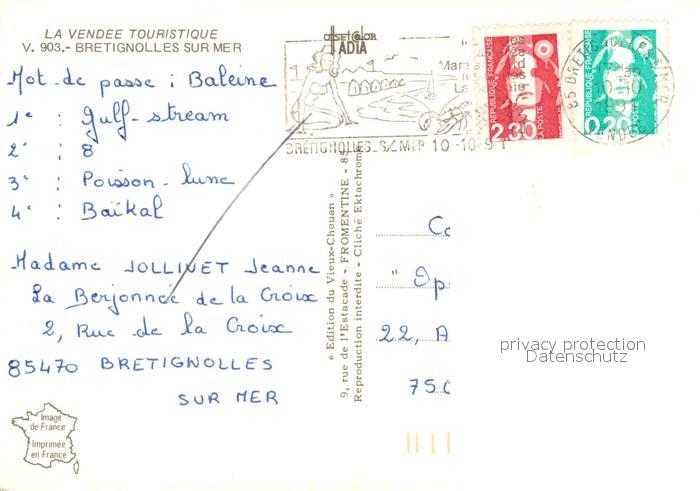 LA VENDEE TOURISTIQUE
V. 903.- BRETIGNOLLES SUR MER
Mot de passe : Baleine
1e : Gulf-stream
2e : 8
3e : Poisson-lune
4e : Baïkal
Madame JOLLIVET Jeanne
La Berjonnée de la Croix
2, Rue de la Croix
85470 BRETIGNOLLES
SUR MER
Image
de France
Imprimée
en France
BRÉTIGNOLLES S/ MER 10-10-91
REPUBLIQUE FRANÇAISE
2,30
LA POSTE
REPUBLIQUE FRANÇAISE
0,20
LA POSTE
« Edition du Vieux-Chouan »
9, rue de l'Estacade - FROMENTINE - 85
Reproduction interdite - Cliché Ektachrome
22, A
750
privacy protection
Datenschutz